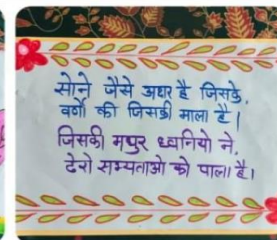 सोने जैसे अक्षर है जिसके,
वर्णो की जिसकी माला है।
जिसकी मधुर ध्वनियो ने,
ढेरो सभ्यताओ को पाला है।